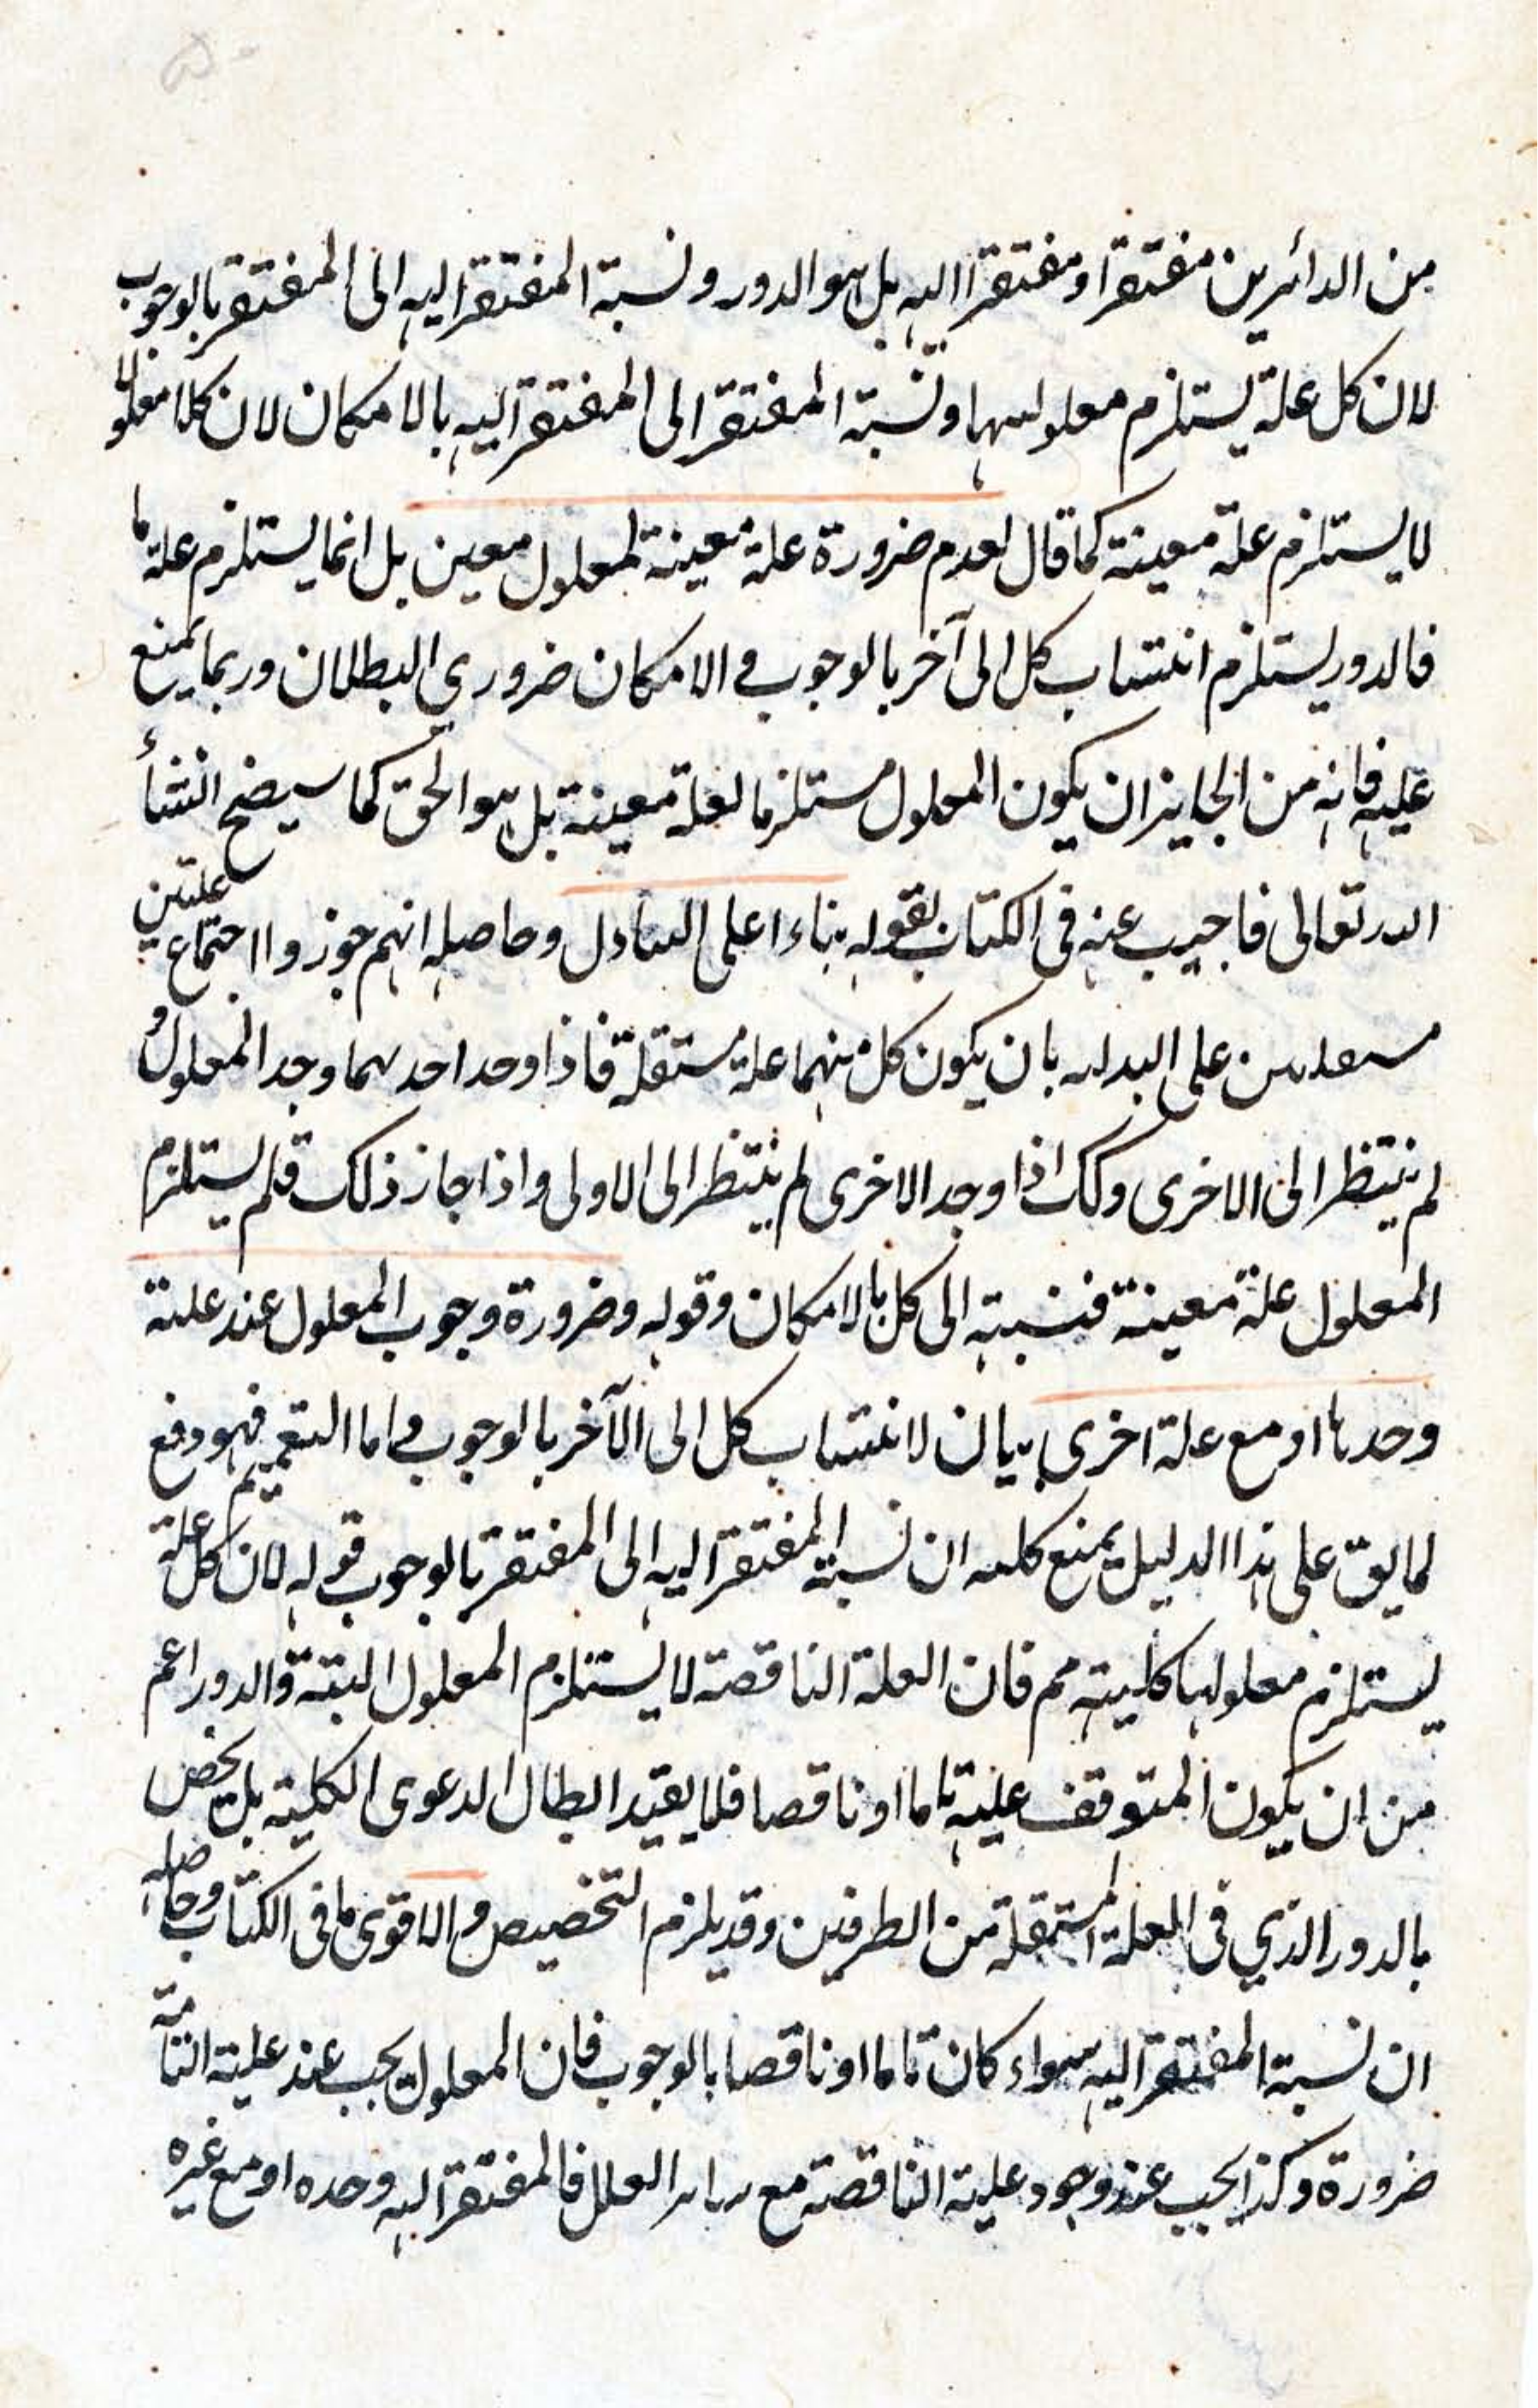 من الدائرين مفتقرا ومفتقرا اليه بل هو الدور ونسبة المفتقر اليه الى المفتقر بالوجوب
لان كل علة يستلزم معلولها ونسبة المفتقر الى المفتقر اليه بالامكان لان كلا معلول
لا يستلزم علة معينة كما قال لعدم ضرورة علة معينة لمعلول معين بل انما يستلزم علة ما
فالدور يستلزم انتساب كل الى آخر بالوجوب والامكان ضروري البطلان وربما يمنع
عليه فانه من الجايز ان يكون المعلول مستلزما لعلة معينة بل هو الحق كما سيضح انشأ
الله تعالى فاجيب عنه في الكتاب بقوله بناءا على التبادل وحاصله انهم جوزوا اجتماع علتين
مستقلتين على البدلية بان يكون كل منهما علة مستقلة فاذا وجد احدهما وجد المعلول و
لم ينتظر الى الاخرى وكك اذا وجد الاخرى لم ينتظر الى الاولى واذا جاز ذلك فلم يستلزم
المعلول علة معينة فنسبته الى كل بالامكان وقوله وضرورة وجوب المعلول عند علته
وحدها او مع علة اخرى بيان لانتساب كل الى الآخر بالوجوب واما التعميم فهو دفع
لما يق على هذا الدليل بمنع كلية ان نسبة المفتقر اليه الى المفتقر بالوجوب قوله لان كل علة
يستلزم معلولها كلية مم فان العلة الناقصة لا يستلزم المعلول البتة والدور اعم
من ان يكون المتوقف عليه تاما او ناقصا فلا يفيد ابطال الدعوى الكلية بل يخص
بالدور الذي في العلة المستقلة من الطرفين وقد يلزم التخصيص والاقوى ما في الكتاب وحاصله
ان نسبة المفتقر اليه سواء كان تاما او ناقصا بالوجوب فان المعلول يجب عند علته التامة
ضرورة وكذا يجب عند وجود علته الناقصة مع ساير العلل فالمفتقر اليه وحده او مع غيره